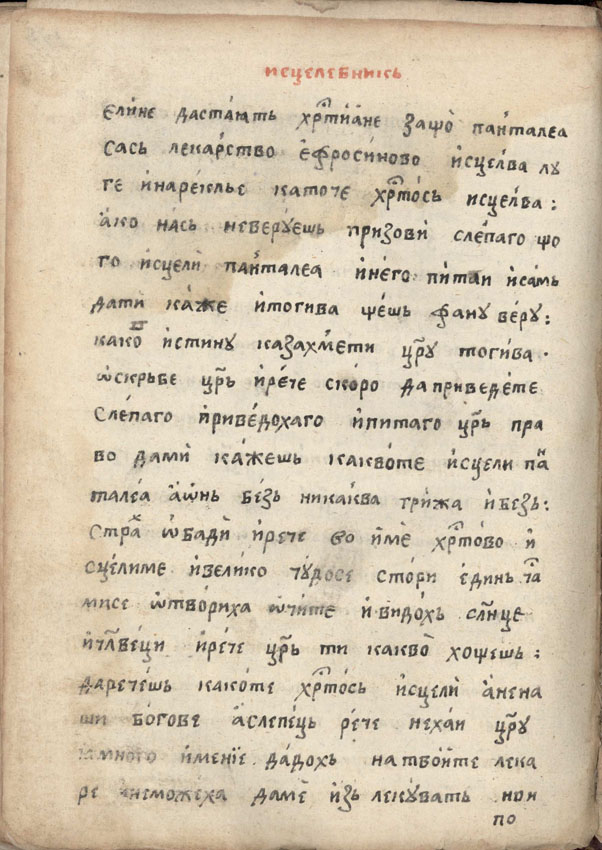 исцелебникь
елі́не даста́ють хр҇тиа́не защо̀ пан́талеа
сась лекарство ефросиново и́сцелѣва лу
ге и́нареклье каточе хр҇то́сь исцелѣва:
а́ко нась неверуешь призови слѣпаго що
го исцели пан́талеа и́не́го питаи и́самь
дати ка́же и́тогива щешь фану веру:
како́ и́стину казахмети цр҃у тогива ·
ѡ́скрьбе цр҃ь и́ре́че ско́ро даприведе́те
слѣпаго приведохаго и́питаго цр҃ь пра
во дами́ ка́жешь каквоте и́сцели пан
талеа а́ѡ҆нь безь никаква грижа и́безь:
страх ѡ҆бади́ и́рече во и́мѐ хр҇то́во и́
сцелиме и́вели́ко чудосе стори единь та
мисе ѿтвориха ѡ҆чи́те и́видохь слн҃це
и́чл҃веци и́ре́че цр҃ь ти какво̀ хощешь:
даречешь како́те хр҇то́сь и́сцели́ а́нена
ши бо́гове а́слепе́ць рече нехаи цр҃у
ꙗ́много и́мение да́дохь натвои́те лека
ре и́неможеха даме и́зь лекувать нои
по